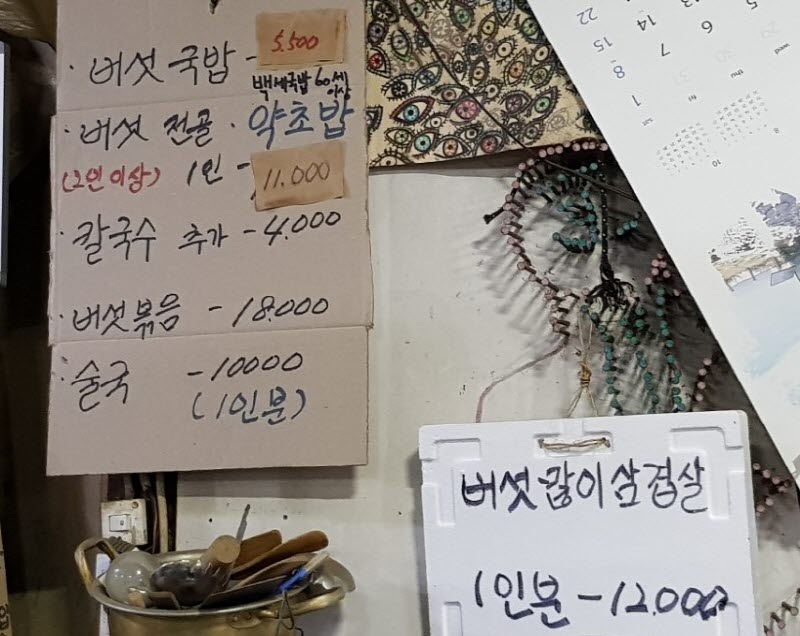 · 버섯 국밥 - 5.500
백세국밥 60세
이상
· 버섯 전골 · 약초밥
(2인 이상) 1인 - 11.000
· 칼국수 추가 - 4.000
· 버섯볶음 - 18.000
· 술국 - 10000
(1인분)
버섯많이삼겹살
1인분 - 12.000
22 14 13 6 5
15 7 30 29
8 31 thu
1 fri
sat
10
8